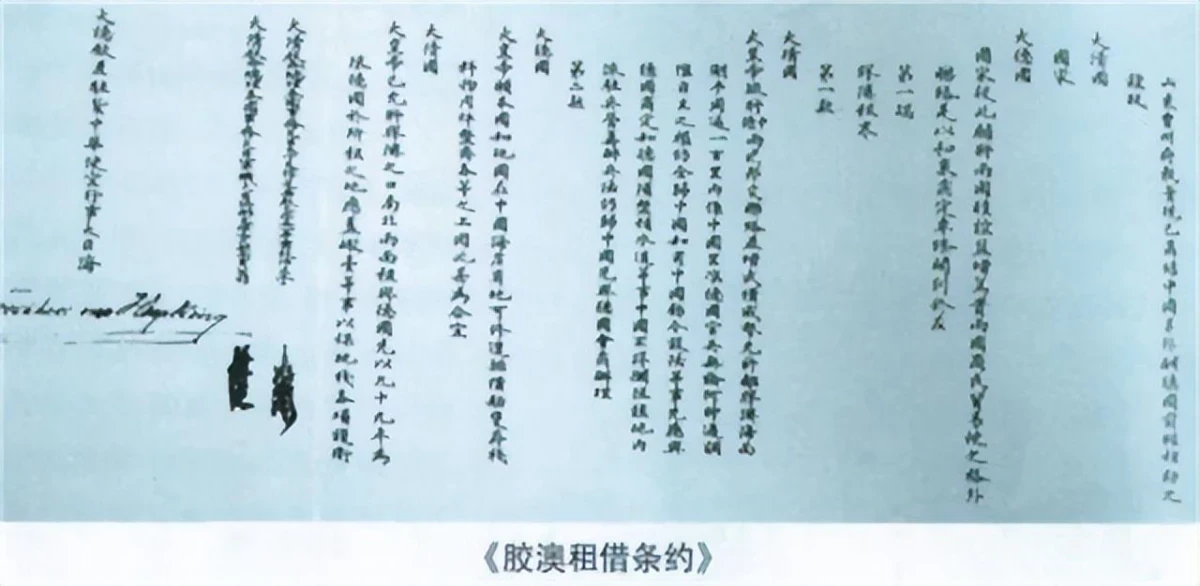 山東曹州府教案現已商結中國另外酬德國前經相助之
誼故
大清國
國家
大德國
國家彼此願將兩國睦誼益增篤實兩國商民貿易使之格外
聯絡是以和衷商定專條開列於左
第一端
膠澳租界
第一款
大清國
大皇帝欲將中德兩國邦交聯絡並增武備威勢允許離膠澳海面
潮平周遍一百里內係中國里准德國官兵無論何時過調
惟自主之權仍全歸中國如有中國飭令設法等事先應與
德國商定如德國須整頓水道等事中國不得攔阻該地內
派駐兵營籌辦兵法仍歸中國先與德國會商辦理
第二款
大德國
大皇帝願本國如他國在中國海岸有地可修造排備船隻存棧
料物用件整齊各等之工因此甚為合宜
大清國
大皇帝已允將膠澳之口南北兩面租與德國先以九十九年為
限德國於所租之地應蓋礮臺等事以保地棧各項護衛
大德欽差駐紮中華便宜行事大臣海
Heyking
《胶澳租借条约》